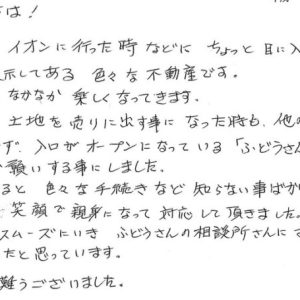 は!
イオンに行った時などに ちょっと 目に入
示してある 色々な不動産です。
なかなか 楽しくなってきます。
土地を売りに出す事に なった時も、他の
ず、入口がオープンになっている 「ふどうさん
お願いする事にしました。
ると 色々な手続きなど 知らない事ばか
笑顔で親身になって 対応して頂きました。
スムーズにいき ふどうさんの相談所さんに
たと思っています。
難うございました。